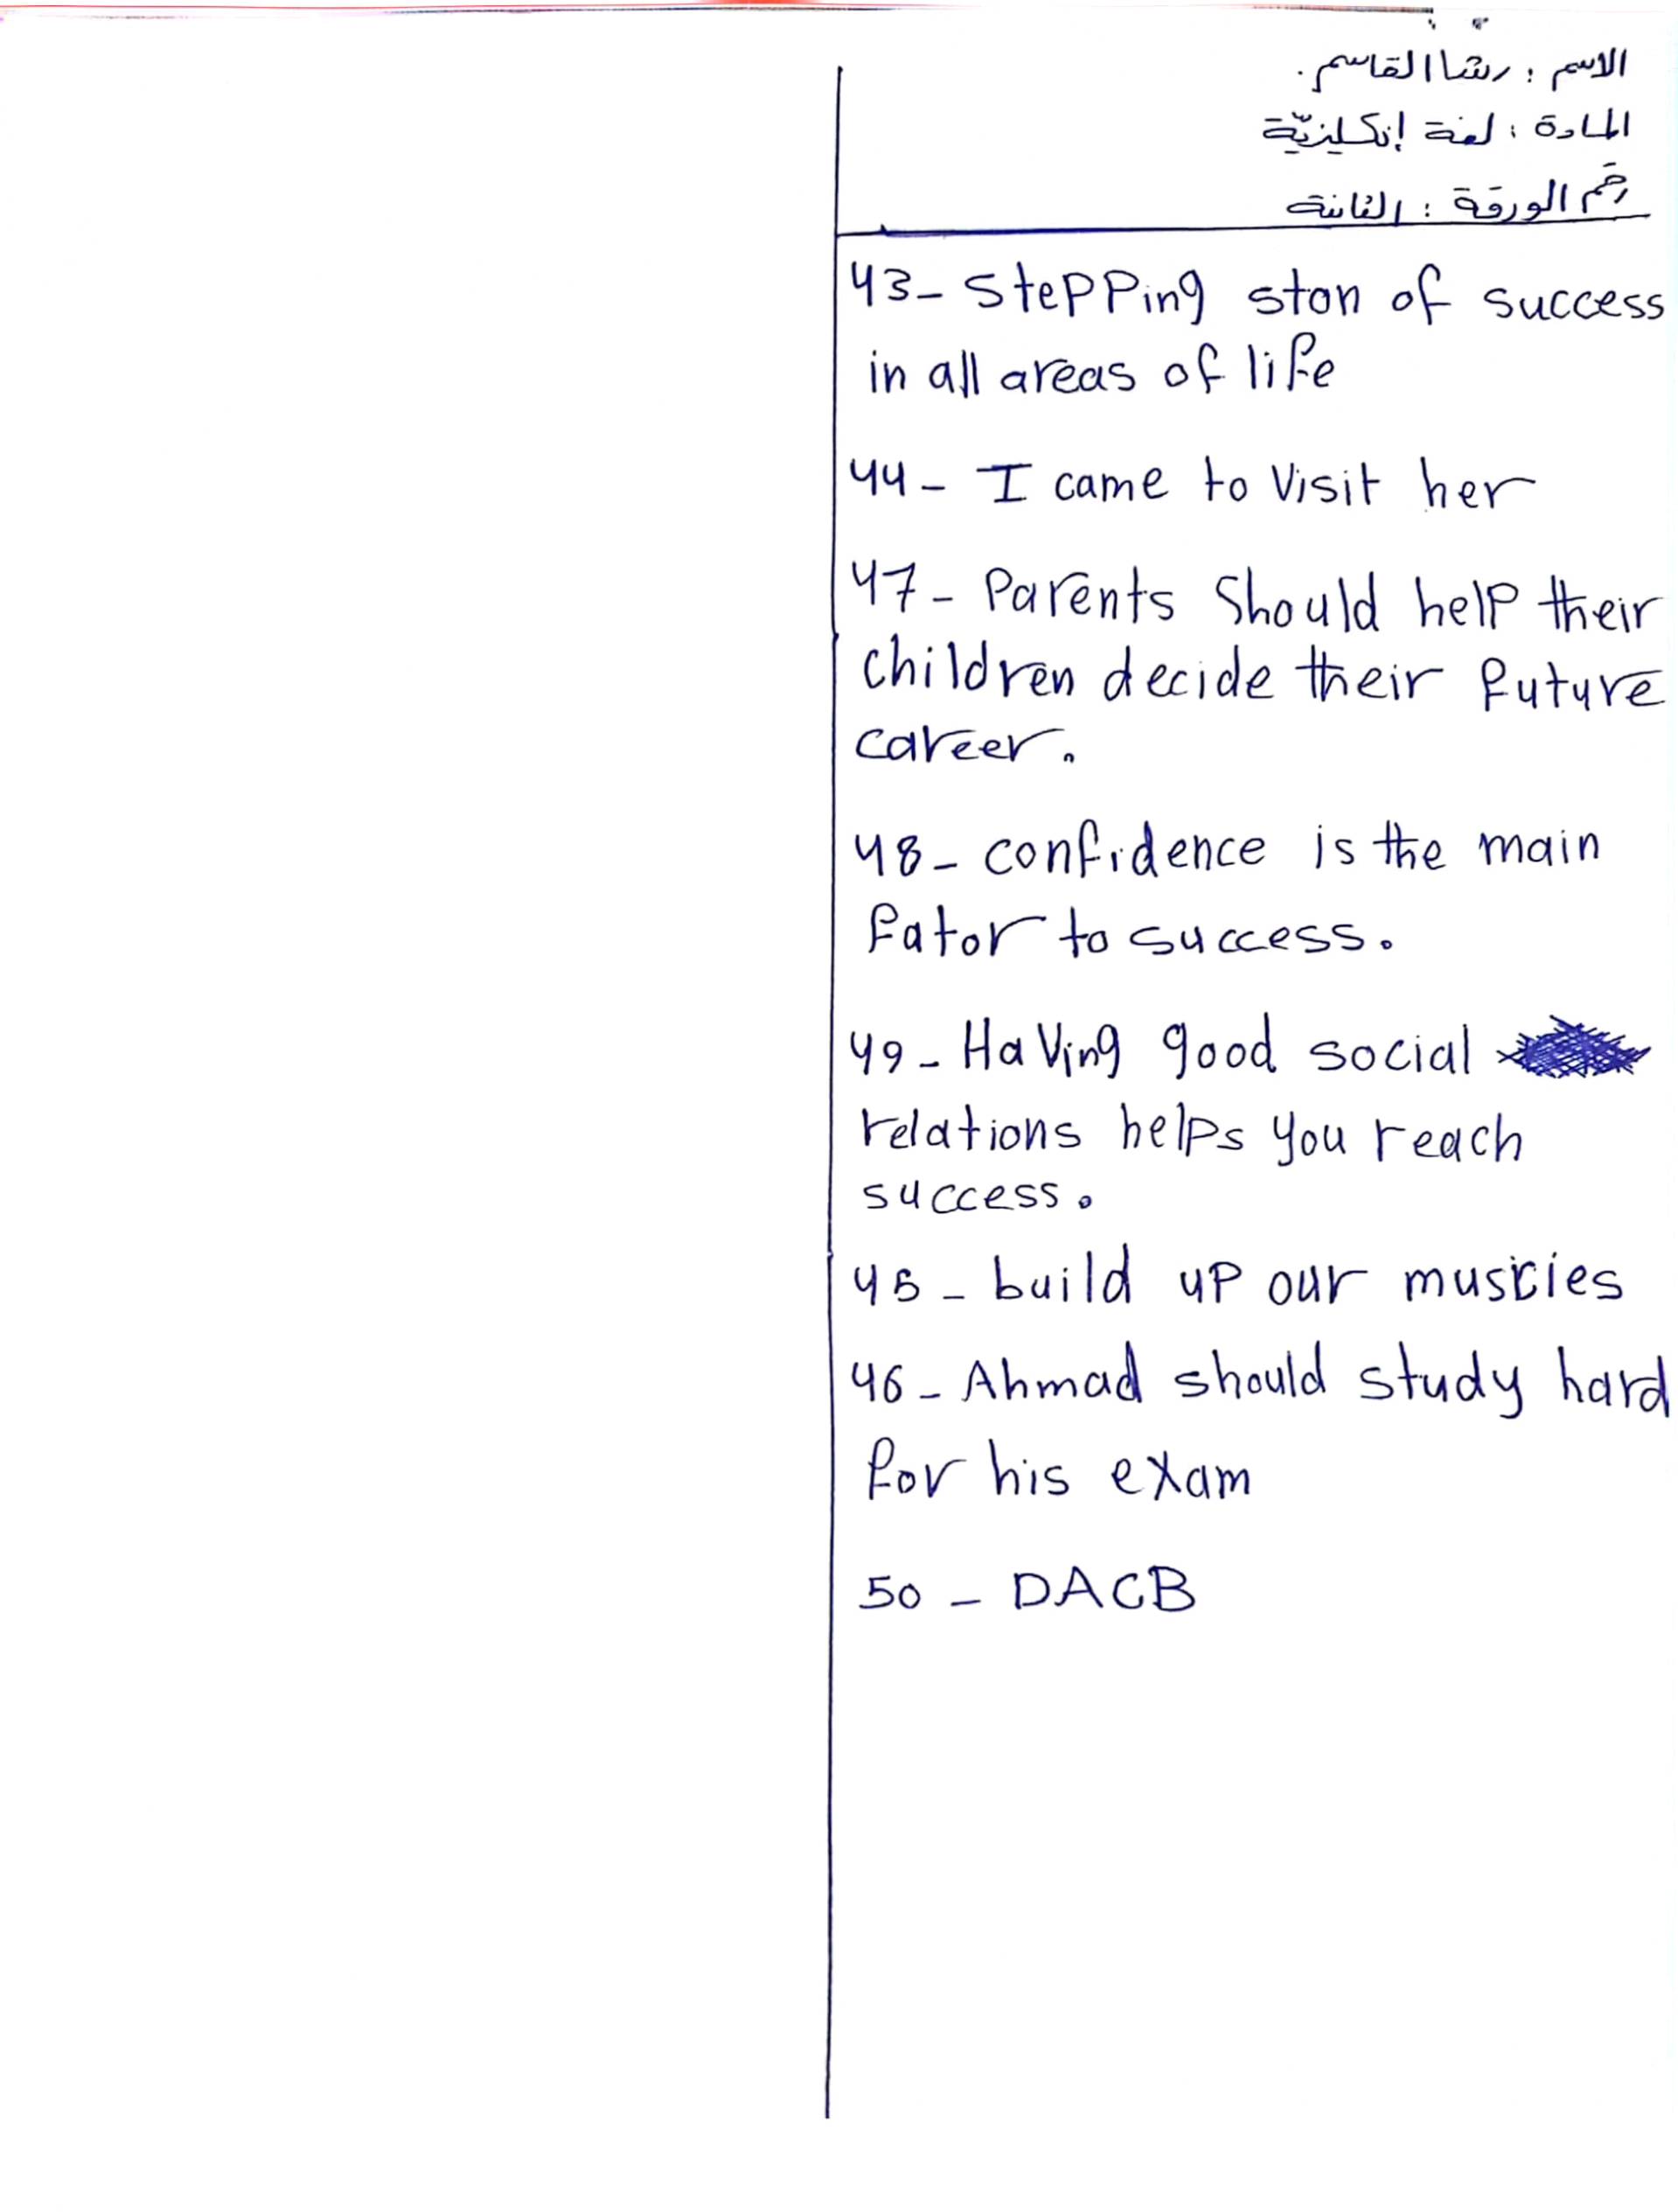 الاسم : رشا القاسم.
المادة : لغة إنكليزيّة
رقم الورقة : الثانية
43- stepping ston of success
in all areas of life
44- I came to visit her
47- Parents should help their
children decide their future
career.
48- confidence is the main
fator to success.
49- Having good social
relations helps you reach
success.
45- build up our muscies
46- Ahmad should study hard
for his exam
50 - DACB